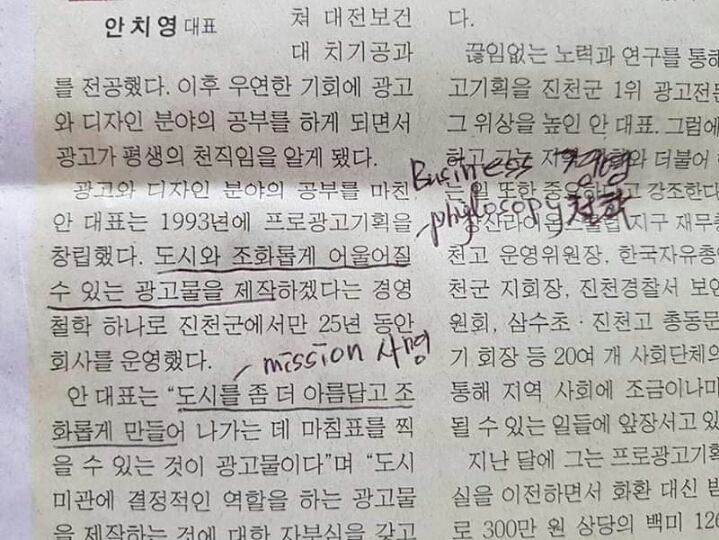 안치영 대표
쳐 대전보건
대 치기공과
를 전공했다. 이후 우연한 기회에 광고
와 디자인 분야의 공부를 하게 되면서
광고가 평생의 천직임을 알게 됐다.
광고와 디자인 분야의 공부를 마친
안 대표는 1993년에 프로광고기획을
창립했다. 도시와 조화롭게 어울어질
수 있는 광고물을 제작하겠다는 경영
철학 하나로 진천군에서만 25년 동안
회사를 운영했다.
mission 사명
안 대표는 “도시를 좀 더 아름답고 조
화롭게 만들어 나가는 데 마침표를 찍
을 수 있는 것이 광고물이다”며 “도시
미관에 결정적인 역할을 하는 광고물
을 제작하는 것에 대한 자부심을 갖고
다.
끊임없는 노력과 연구를 통해
고기획을 진천군 1위 광고전
그 위상을 높인 안 대표. 그럼에
하고 그는 더불어
Business 경영
는 일 또한 강조한다
phylosopy 철학
지구 재무
천고 운영위원장, 한국자유총
천군 지회장, 진천경찰서 보
원회, 삼수초·진천고 총동문
기 회장 등 20여 개 사회단체의
통해 지역 사회에 조금이나마
될 수 있는 일들에 앞장서고 있
지난 달에 그는 프로광고기획
실을 이전하면서 화환 대신 받
로 300만 원 상당의 백미 126